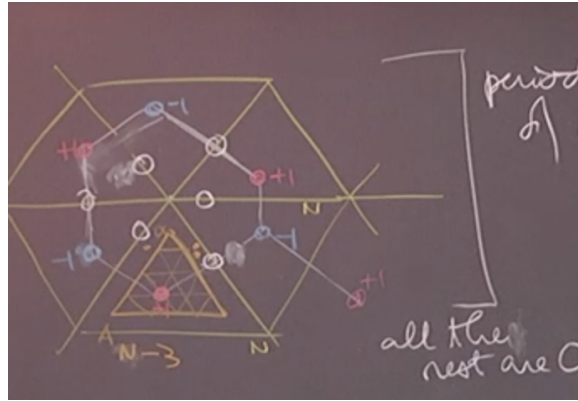 -1
+1
+1
N
-1
-1
+1
A
N-3
N
period
of
all the
rest are 0